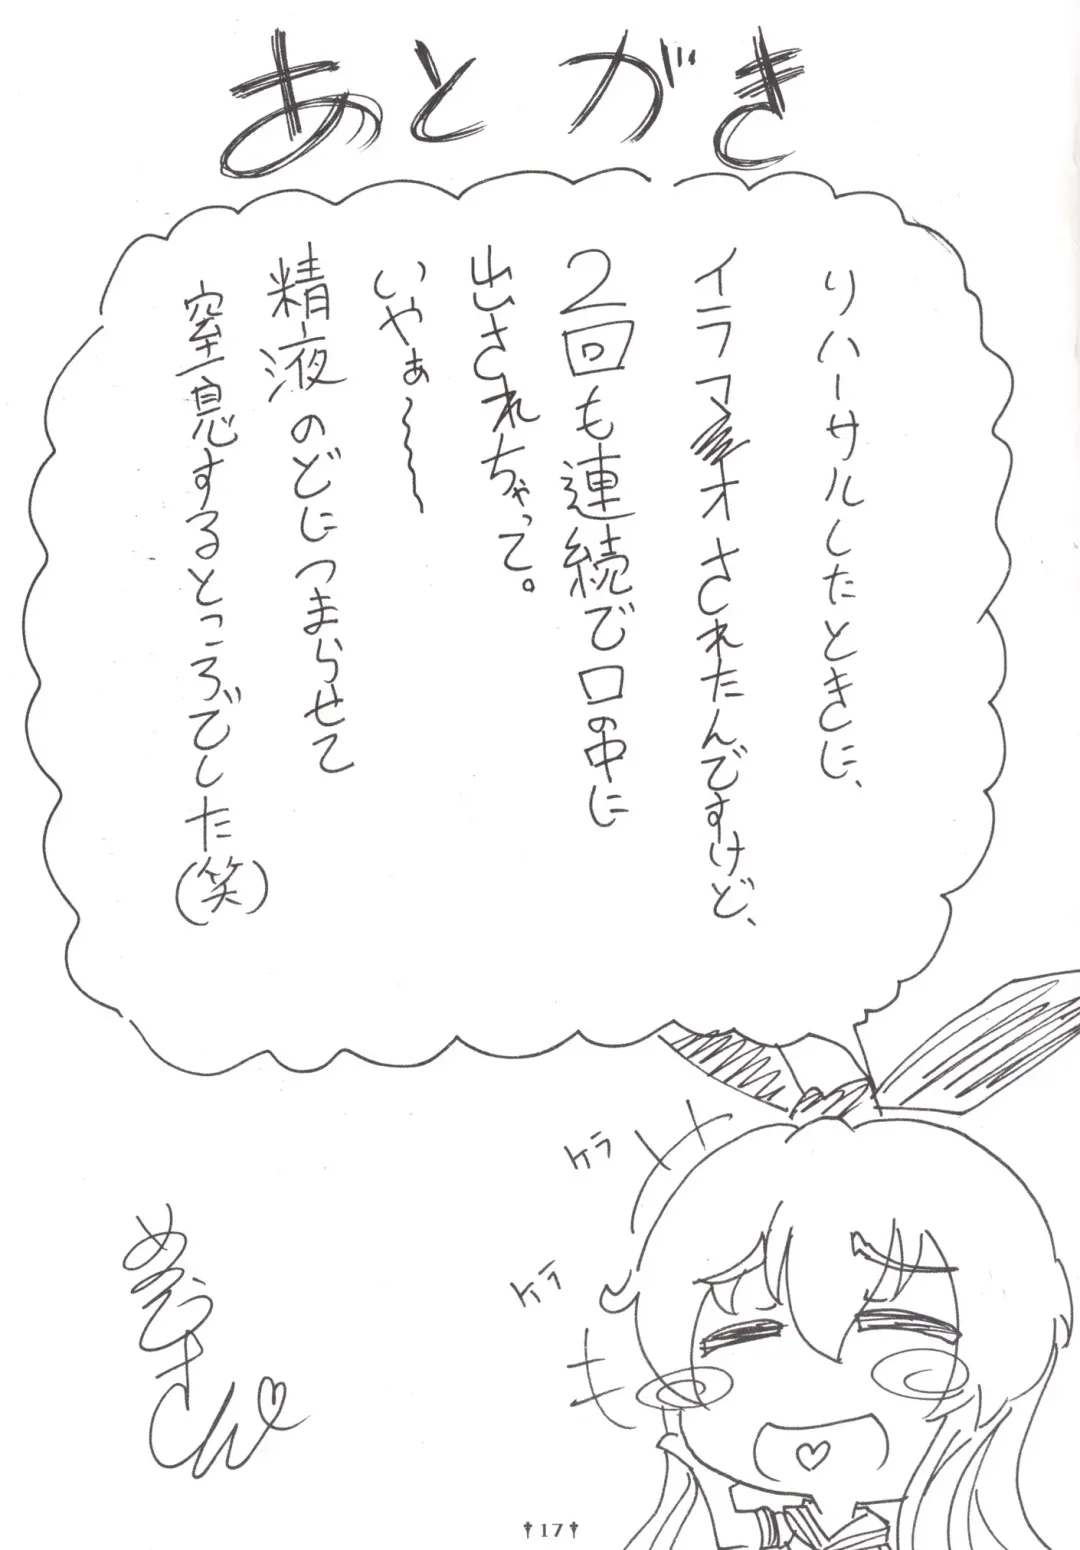 あとがき
リハーサルしたときに、
イラマオされたんですけど、
2回も連続で口の中に
出されちゃって。
いやぁ〜〜
精液のどにつまらせて
窒息するところでした(笑)
ケラ
ケラ
17